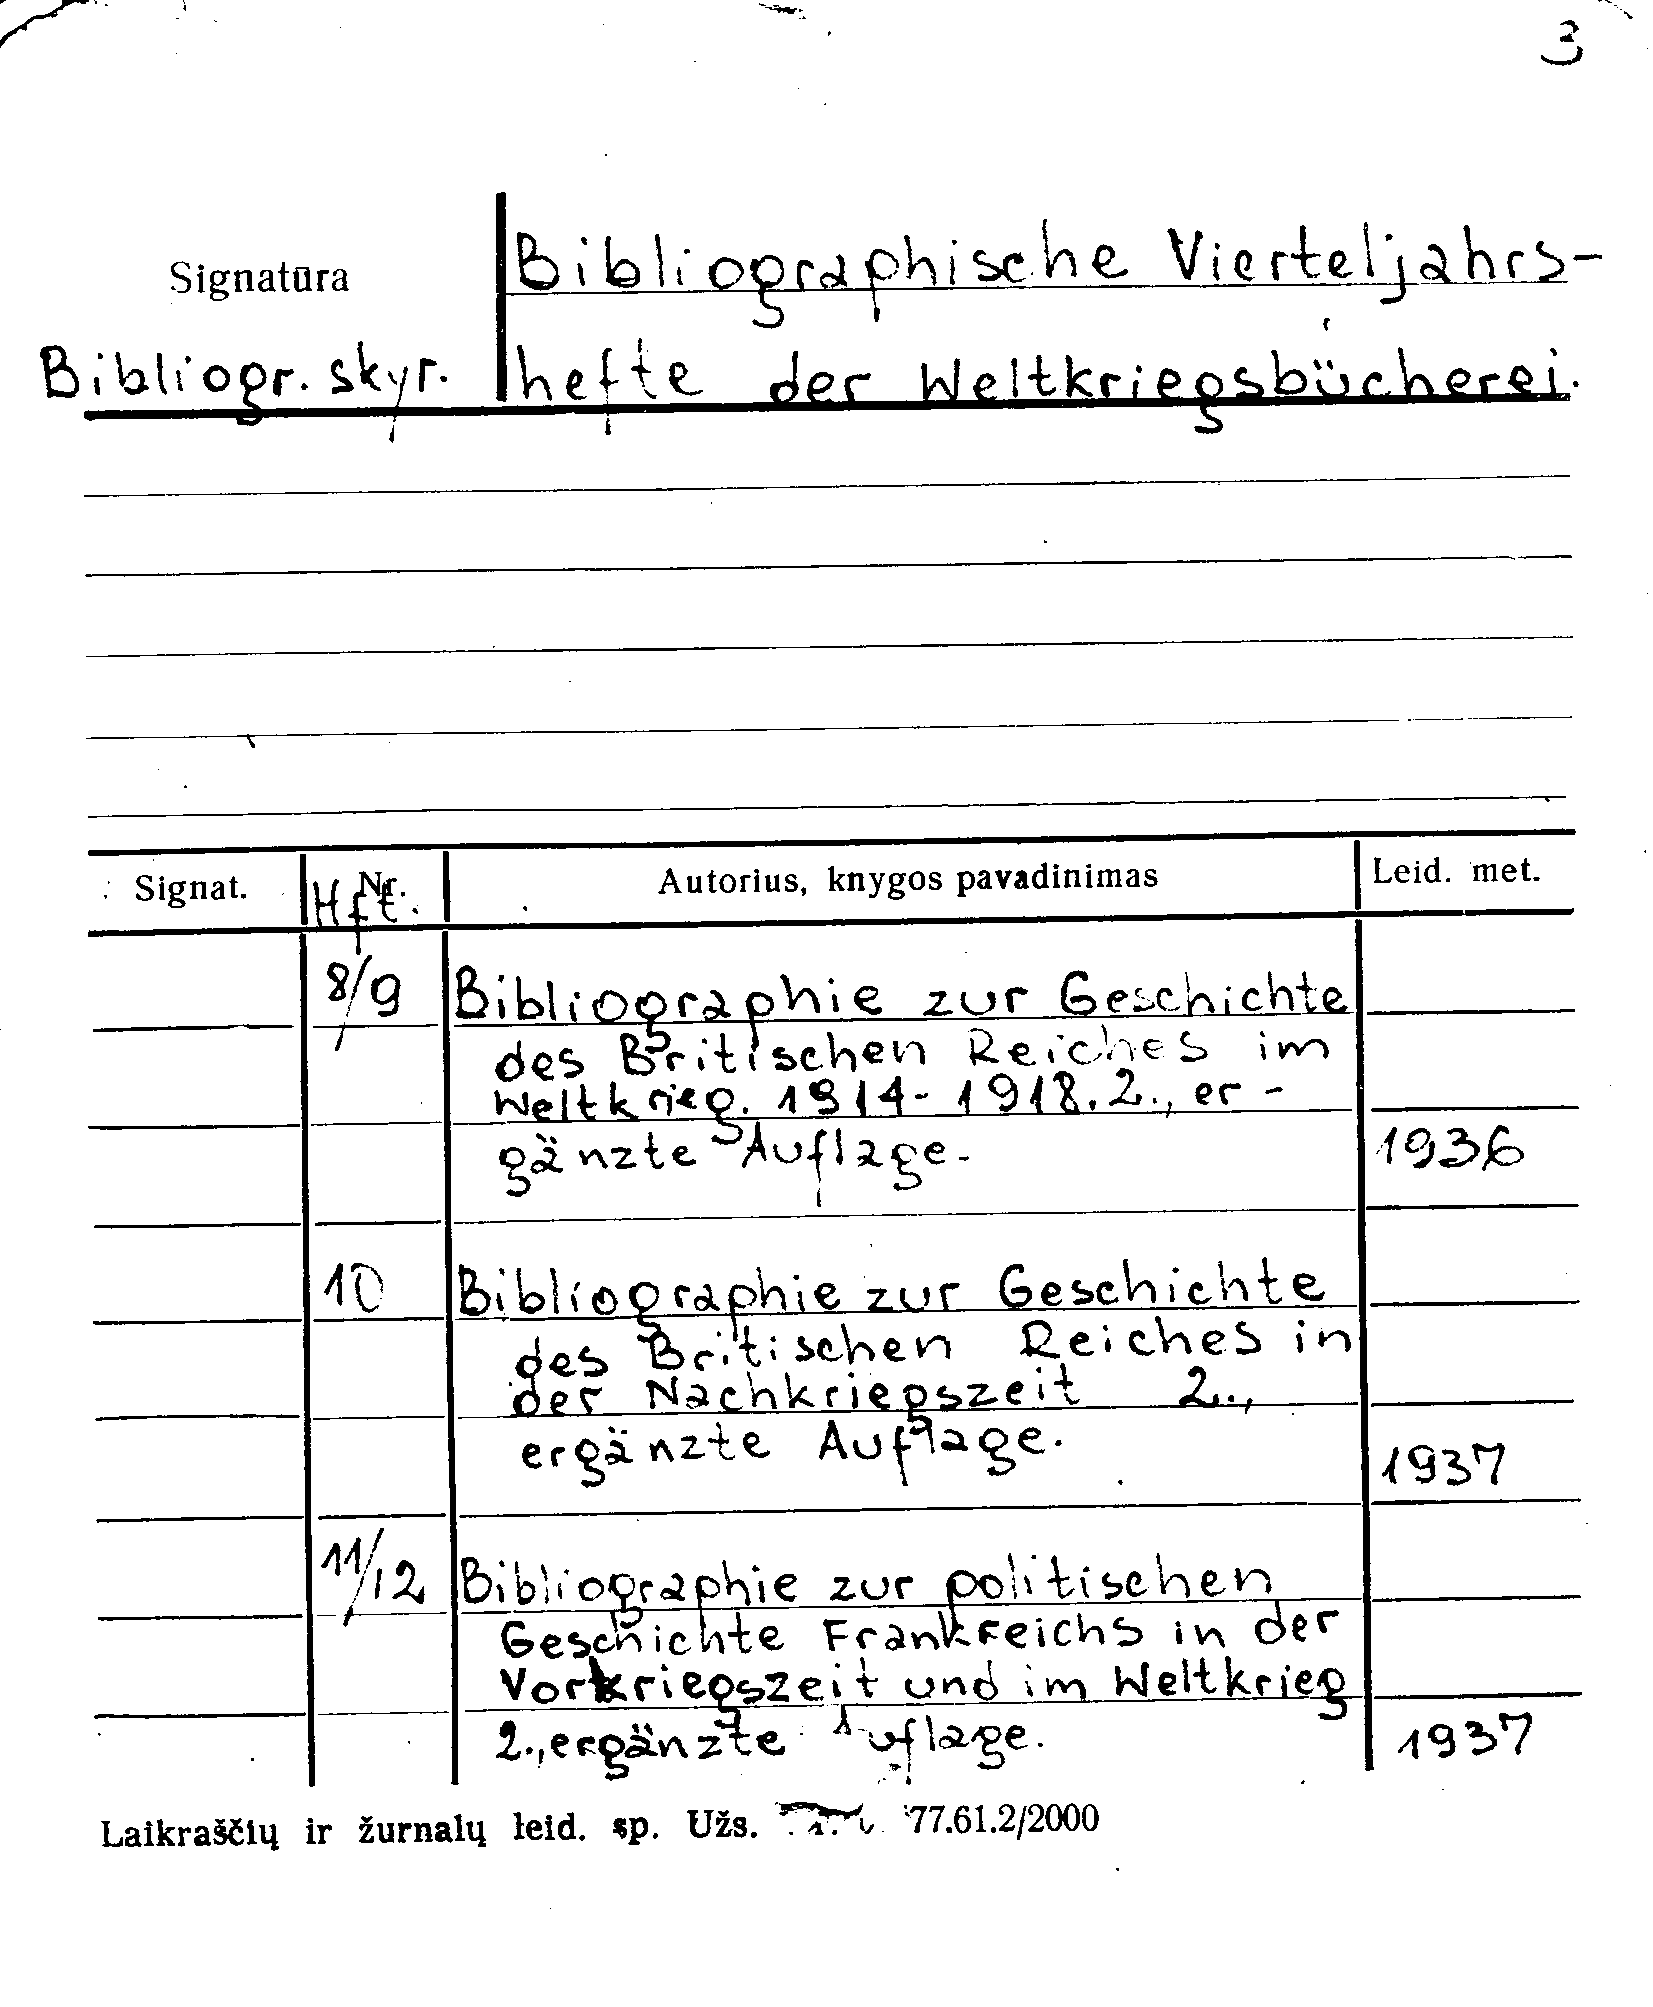 3
Signatūra
Bibliographische Vierteljahrs-
Bibliogr. skyr.
hefte der Weltkriegsbücherei.
Signat.
Nr.
Hft.
Autorius, knygos pavadinimas
Leid. met.
8/9
Bibliographie zur Geschichte
des Britischen Reiches im
Weltkrieg. 1914-1918. 2., er-
gänzte Auflage.
1936
10
Bibliographie zur Geschichte
des Britischen Reiches in
der Nachkriegszeit 2.,
ergänzte Auflage.
1937
11/12
Bibliographie zur politischen
Geschichte Frankreichs in der
Vorkriegszeit und im Weltkrieg
2., ergänzte Auflage.
1937
Laikraščių ir žurnalų leid. sp. Užs. 77.61.2/2000